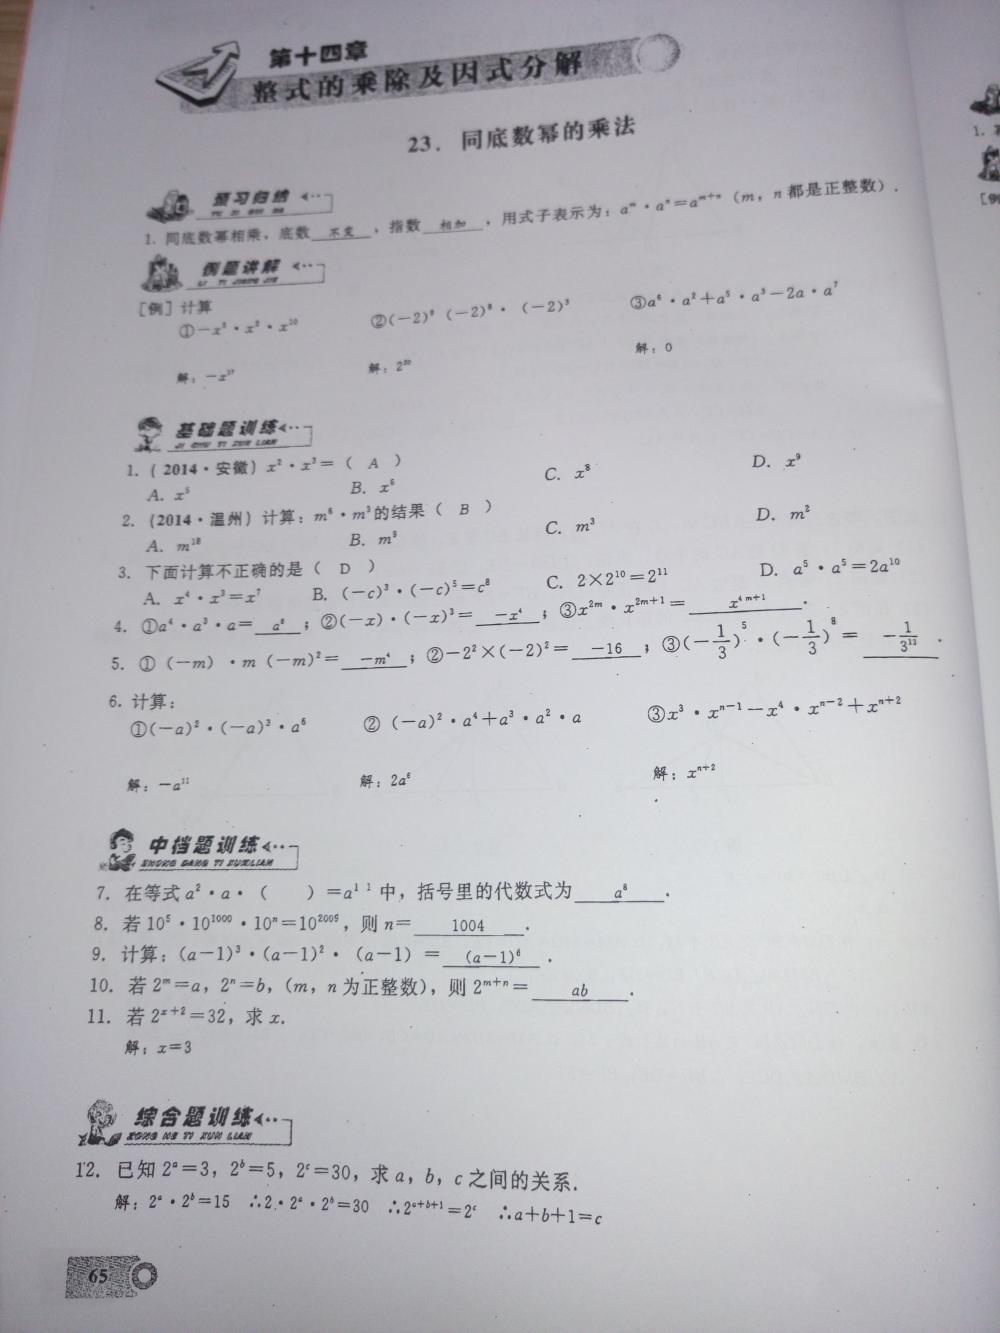 第十四章
整式的乘除及因式分解
23. 同底数幂的乘法
预习归纳
YU XI GUI NA
1. 同底数幂相乘，底数 不变 ，指数 相加 ，用式子表示为：aᵐ·aⁿ=aᵐ⁺ⁿ（m，n都是正整数）.
例题讲解
LI TI JIANG JIE
[例] 计算
①−x⁵·x²·x¹⁰ ②(−2)⁹ (−2)⁸·(−2)³ ③a⁶·a²+a⁵·a³−2a·a⁷
解：−x¹⁷ 解：2²⁰ 解：0
基础题训练
JI CHU TI XUN LIAN
1. (2014·安徽) x²·x³=（ A ）
A. x⁵ B. x⁶ C. x⁸ D. x⁹
2. (2014·温州) 计算：m⁶·m³的结果（ B ）
A. m¹⁸ B. m⁹ C. m³ D. m²
3. 下面计算不正确的是（ D ）
A. x⁴·x³=x⁷ B. (−c)³·(−c)⁵=c⁸ C. 2×2¹⁰=2¹¹ D. a⁵·a⁵=2a¹⁰
4. ①a⁴·a³·a= a⁸ ；②(−x)·(−x)³= −x⁴ ；③x²ᵐ·x²ᵐ⁺¹= x⁴ᵐ⁺¹ .
5. ①（−m）·m（−m)²= −m⁴ ；②−2²×(−2)²= −16 ；③(−1/3)⁵·(−1/3)⁸= −1/3¹³ .
6. 计算：
①(−a)²·(−a)³·a⁶ ②（−a)²·a⁴+a³·a²·a ③x³·xⁿ⁻¹−x⁴·xⁿ⁻²+xⁿ⁺²
解：−a¹¹ 解：2a⁶ 解：xⁿ⁺²
中档题训练
ZHONG DANG TI XUN LIAN
7. 在等式a²·a·（ ）=a¹¹中，括号里的代数式为 a⁸ .
8. 若10⁵·10¹⁰⁰⁰·10ⁿ=10²⁰⁰⁹，则n= 1004 .
9. 计算：(a−1)³·(a−1)²·（a−1）= (a−1)⁶ .
10. 若2ᵐ=a，2ⁿ=b，(m，n为正整数)，则2ᵐ⁺ⁿ= ab .
11. 若2ˣ⁺²=32，求x.
解：x=3
综合题训练
ZONG HE TI XUN LIAN
12. 已知2ᵃ=3，2ᵇ=5，2ᶜ=30，求a，b，c之间的关系.
解：2ᵃ·2ᵇ=15 ∴2·2ᵃ·2ᵇ=30 ∴2ᵃ⁺ᵇ⁺¹=2ᶜ ∴a+b+1=c
65